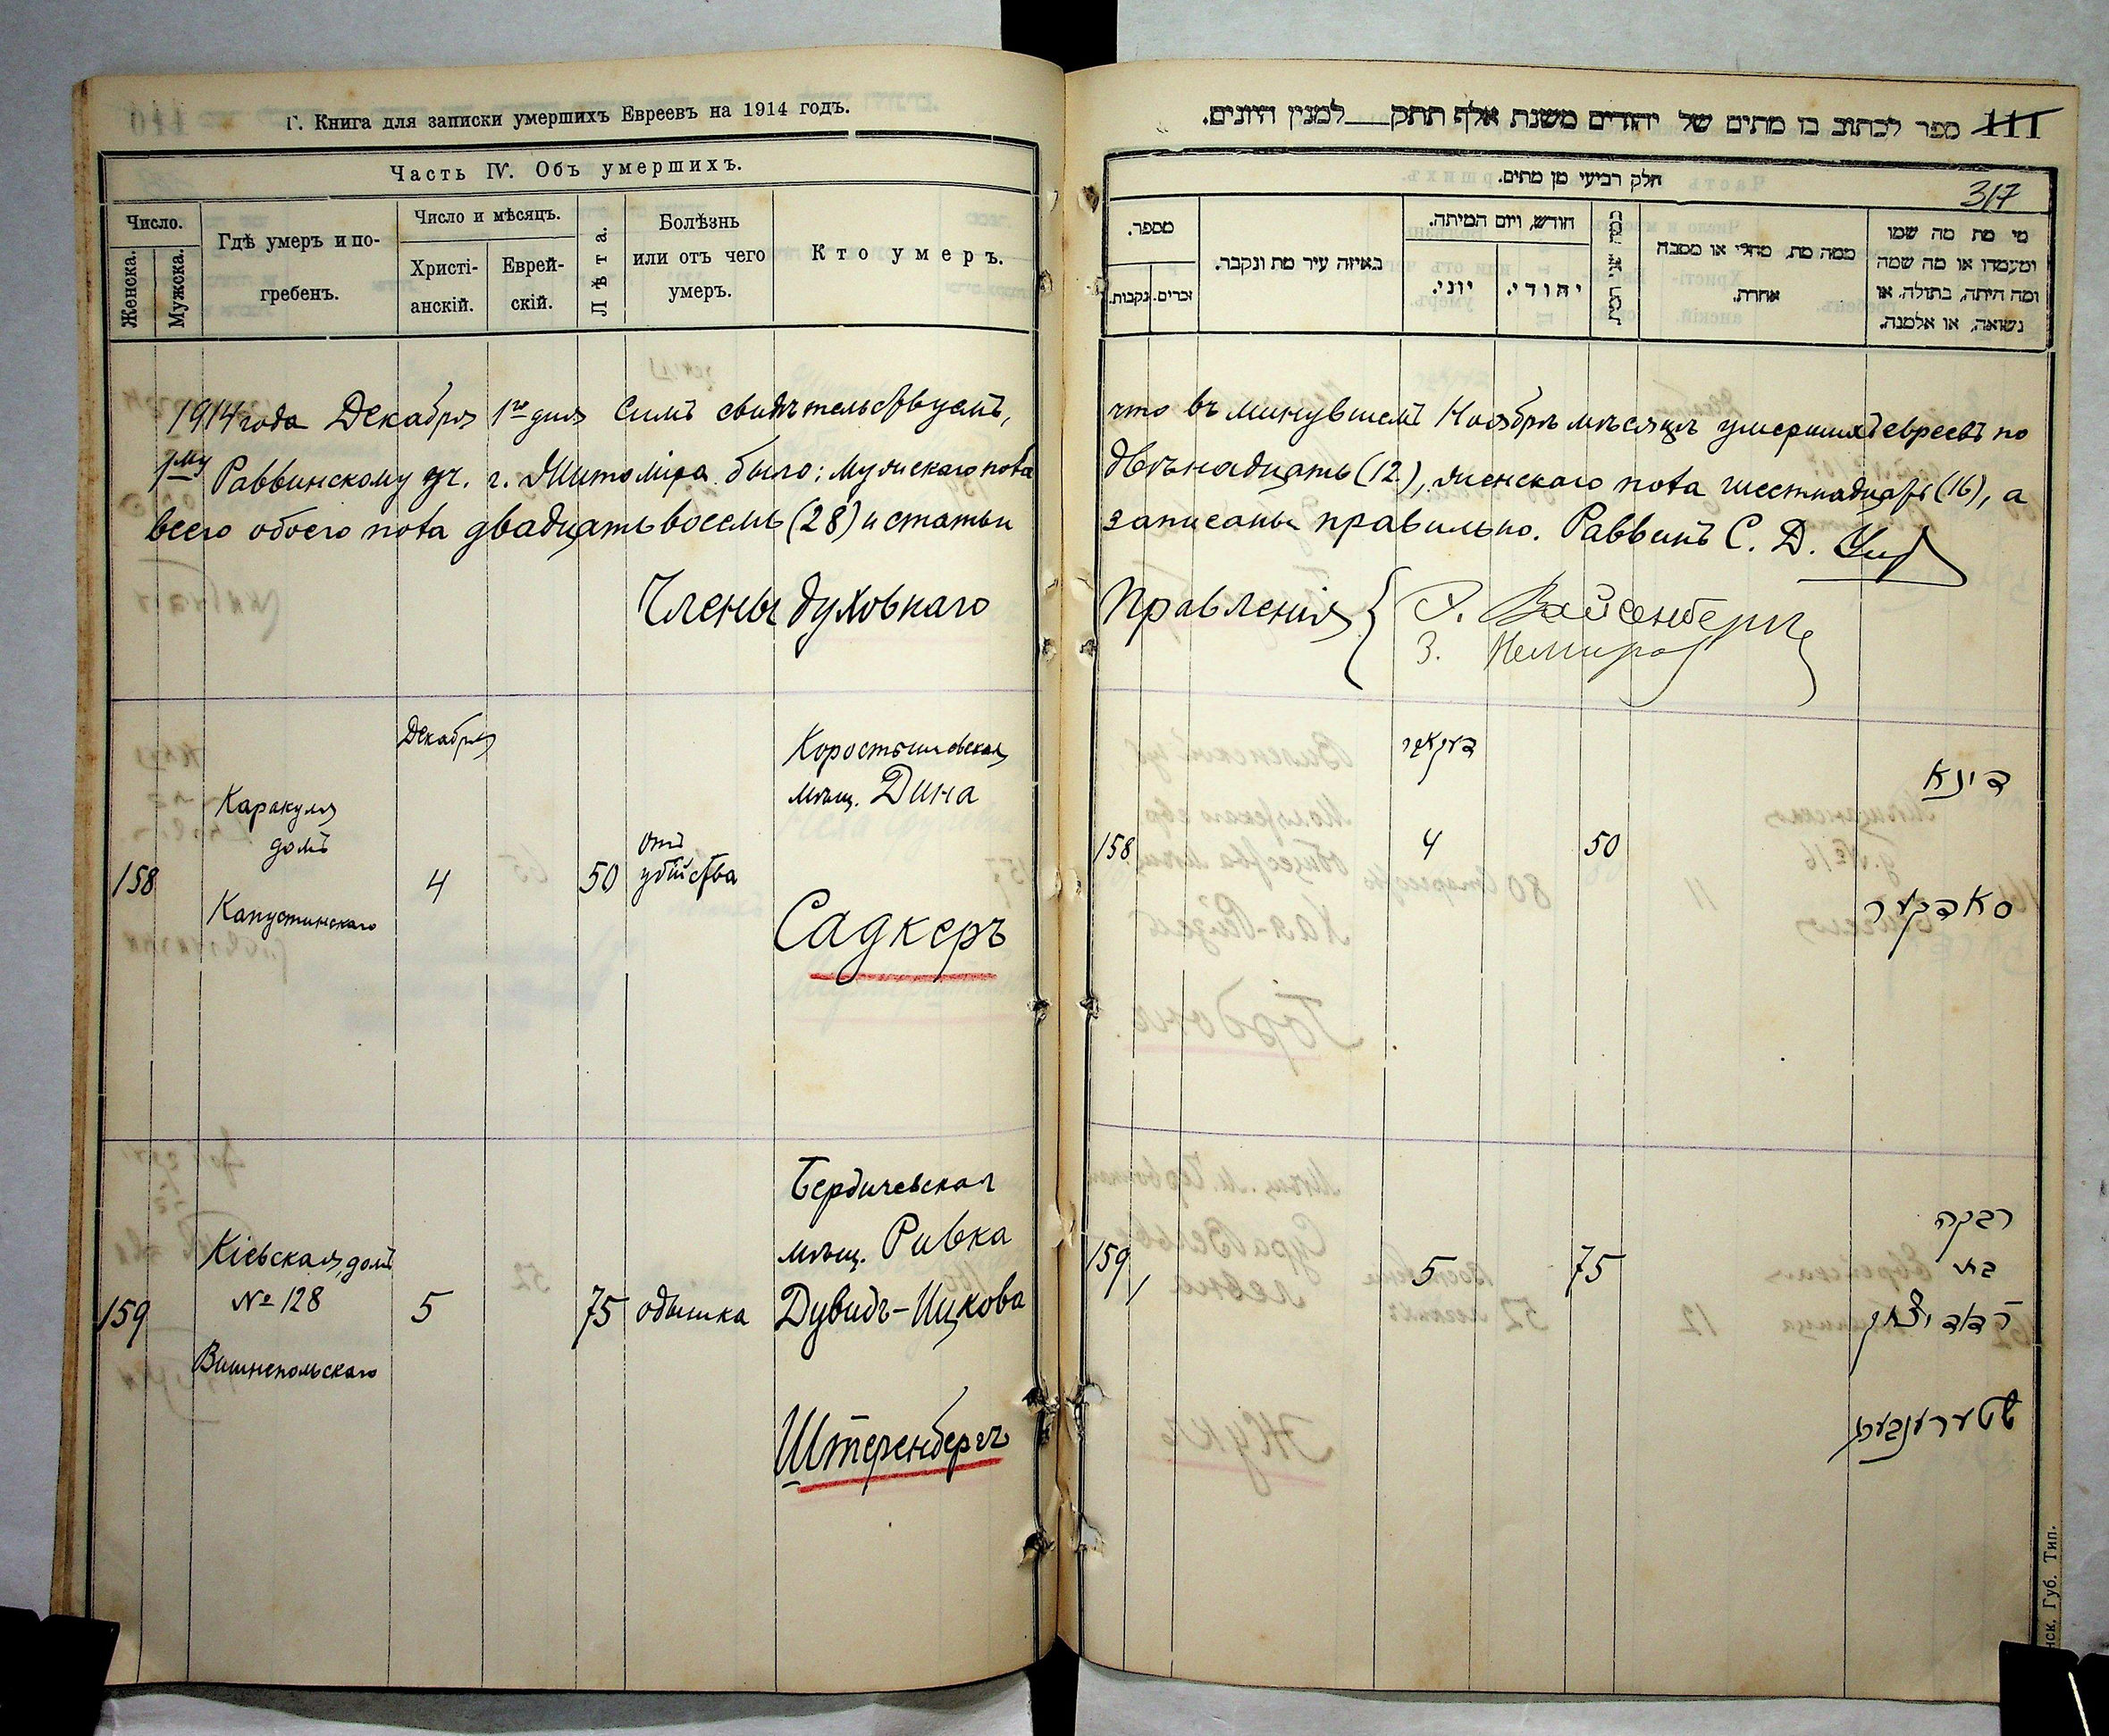 Г. Книга для записки умершихъ Евреевъ на 1914 годъ.
Часть IV. Объ умершихъ.
Число.
Женска.
Мужска.
Гдѣ умеръ и по-
гребенъ.
Число и мѣсяцъ.
Христі-
анскій.
Еврей-
скій.
Лѣта.
Болѣзнь
или отъ чего
умеръ.
Кто умеръ.
1914 года Декабря 1го дня Симъ свидѣтельствуемъ,
1му Раввинскому уч. г. Житоміра было: мужскаго пола
всего обоего пола двадцать восемь (28) и статьи
Члены духовнаго
Декабря
158
Каракуля
домъ
Капустинскаго
4
50
отъ
убійства
Коростышевская
мѣщ. Дина
Садкеръ
159
Кіевская, домъ
№ 128
Вишнепольскаго
5
75
одышка
Бердичевская
мѣщ. Ривка
Дувидъ-Ицкова
Штеренбергъ
111 ספר לכתוב בו מתים של יהודים משנת אלף תתק למנין היונים.
חלק רביעי מן מתים.
317
מספר.
נקבות.
זכרים.
באיזה עיר מת ונקבר.
חודש, ויום המיתה.
יוני.
יהודי.
ממה מת, מחלי או מסבה
אחרת.
מי מת מה שמו
ומעמדו או מה שמה
ומה היתה, בתולה, או
נשואה, או אלמנה.
что въ минувшемъ Ноябрѣ мѣсяцѣ умершихъ евреевъ по
двѣнадцать (12), женскаго пола шестнадцать (16), а
записаны правильно. Раввинъ С. Д.
Правленія
Вайсенбергъ
З.
158
4
50
דינא
סאדקער
159
5
75
רבקה
בת
דוד יצחק
שטערענבערג
Губ. Тип.